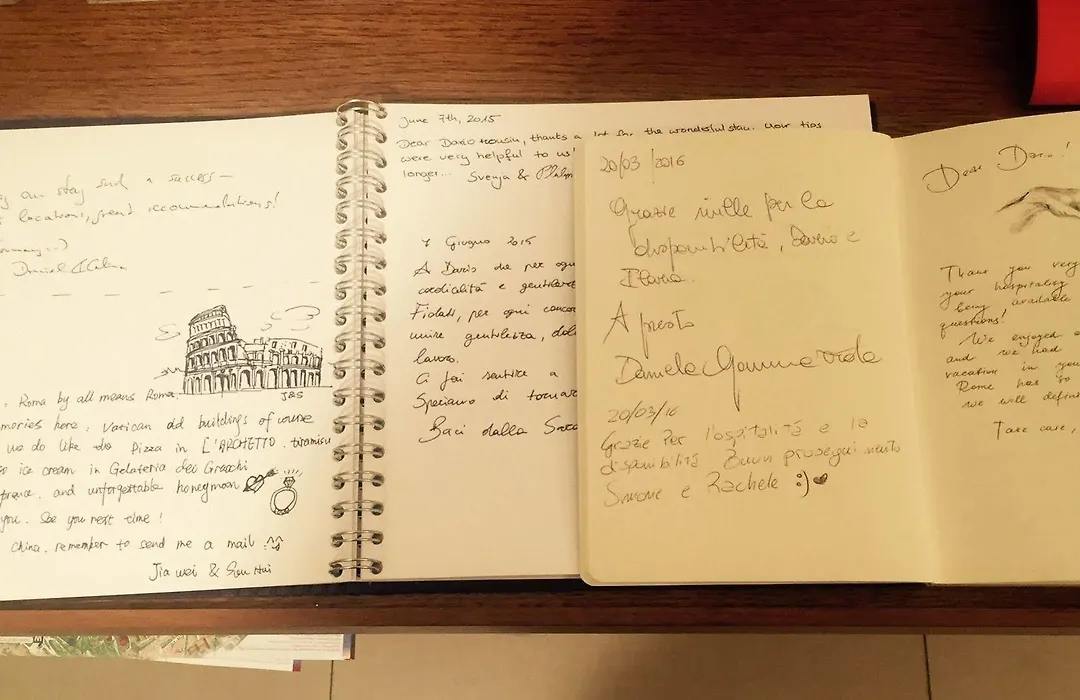 our stay such a success –
location, great recommendations!
J&S
Roma by all means Roma.
here, Vatican old buildings of course
we do like do Pizza in L'ARCHETTO, tiramisu
ice cream in Gelateria dei Gracchi
and unforgettable honeymoon
you. See you next time!
China, remember to send me a mail ^^
Jia wei & Hui
June 7th, 2015
Dear Dario, thanks a lot for the wonderful stay. Your tips
were very helpful to us!
longer... Svenja &
7 Giugno 2015
A Dario che per ogni
cordialità e gentilezza
Fidati, per ogni
unire gentilezza,
lavoro.
Ci fai sentire a
Speriamo di tornar
Baci dalla
20/03/2016
Grazie mille per la
disponibilità, Dario e
Ilaria.
A presto
Daniela
20/03/16
Grazie Per l'ospitalità e la
disponibilità Buon proseguimento
Simone e Rachele :) ♥
Dear Dario!
Thank you very
your hospitality
being available
questions!
We enjoyed
and we had
vacation in you
Rome has so
we will define
Take care,